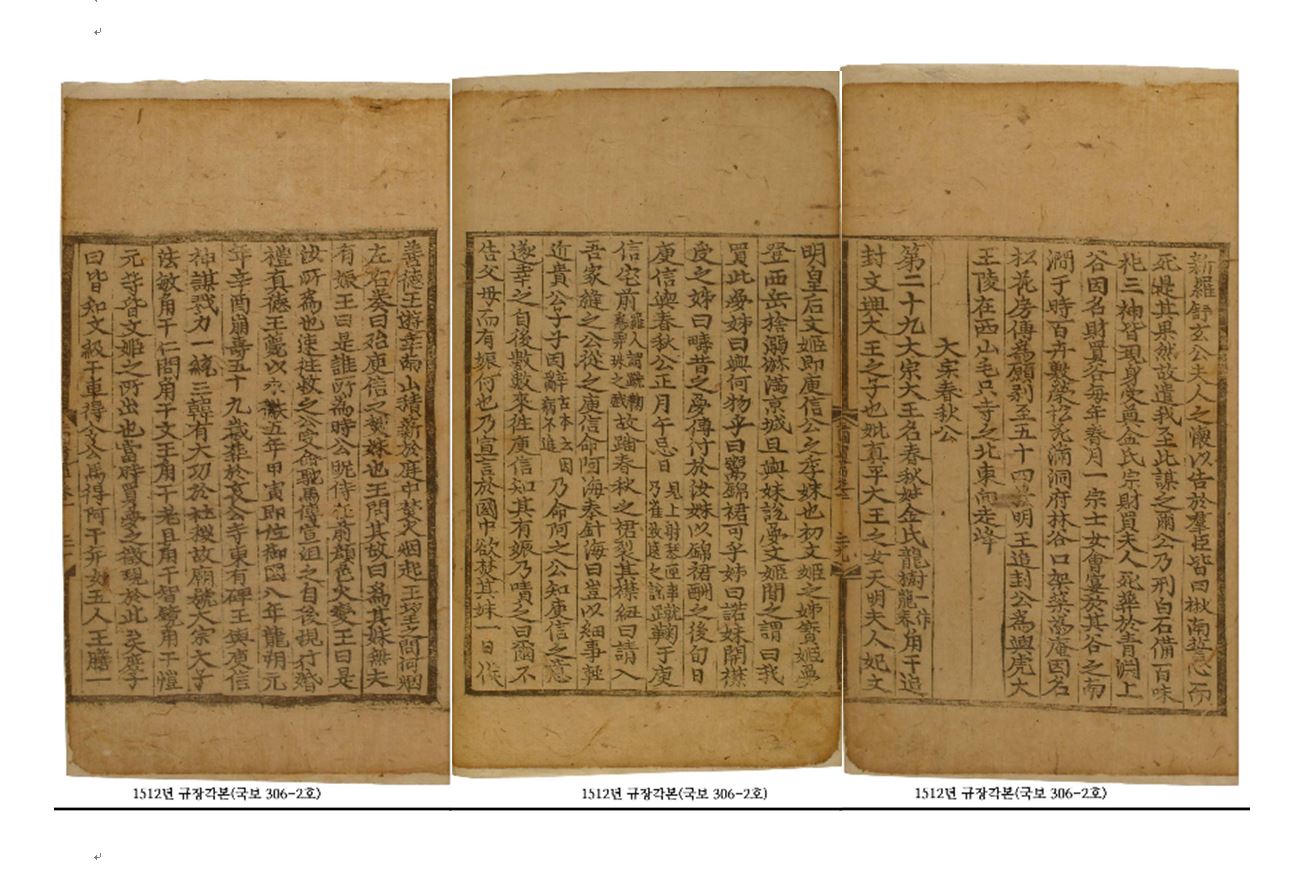 新羅舒玄公夫人之懷以告於羣臣皆曰楸南誓心而
死是其果然故遣我至此謀之爾公乃刑白石備百味
祀三神皆現身受奠金氏宗財買夫人死葬於青淵上
谷因名財買谷每年春月一宗士女會宴於其谷之南
澗于時百卉敷榮松花滿洞府林谷口架築爲庵因名
松花房傳爲願刹至五十四景明王追封公爲興虎大
王陵在西山毛只寺之北東向走峰
大宗春秋公
第二十九大宗大王名春秋姓金氏龍樹一作龍春角干追
封文興大王之子也妣真平大王之女天明夫人妃文
明皇后文姬即庾信公之季妹也初文姬之姊寶姬夢
登西岳捨溺瀰滿京城旦與妹說夢文姬聞之謂曰我
買此夢姊曰與何物乎曰鬻錦裙可乎姊曰諾妹開襟
受之姊曰疇昔之夢傳付於汝妹以錦裙酬之後旬日
庾信與春秋公正月午忌日見上射琴匣事乃崔致遠之說蹴鞠于庾
信宅前羅人謂蹴鞠爲弄珠之戲故踏春秋之裙裂其襟紐曰請入
吾家縫之公從之庾信命阿海奉針海曰豈以細事輕
近貴公子乎因辭古本云因病不進乃命阿之公知庾信之意
遂幸之自後數數來往庾信知其有娠乃嘖之曰爾不
告父母而有娠何也乃宣言於國中欲焚其妹一日俟
善德王遊幸南山積薪於庭中焚火烟起王望之問何烟
左右奏曰殆庾信之焚妹也王問其故曰爲其妹無夫
有娠王曰是誰所爲時公昵侍在前顏色大變王曰是
汝所爲也速往救之公受命馳馬傳宣沮之自後現行婚
禮真德王薨以永徽五年甲寅即位御國八年龍朔元
年辛酉崩壽五十九歲葬於哀公寺東有碑王與庾信
神謀戮力一統三韓有大功於社稷故廟號大宗太子
法敏角干仁問角干文王角干老且角干智鏡角干愷
元等皆文姬之所出也當時買夢之徵現於此矣庶子
曰皆知文級干車得令公馬得阿干并女五人王膳一
1512년 규장각본(국보 306-2호)
1512년 규장각본(국보 306-2호)
1512년 규장각본(국보 306-2호)